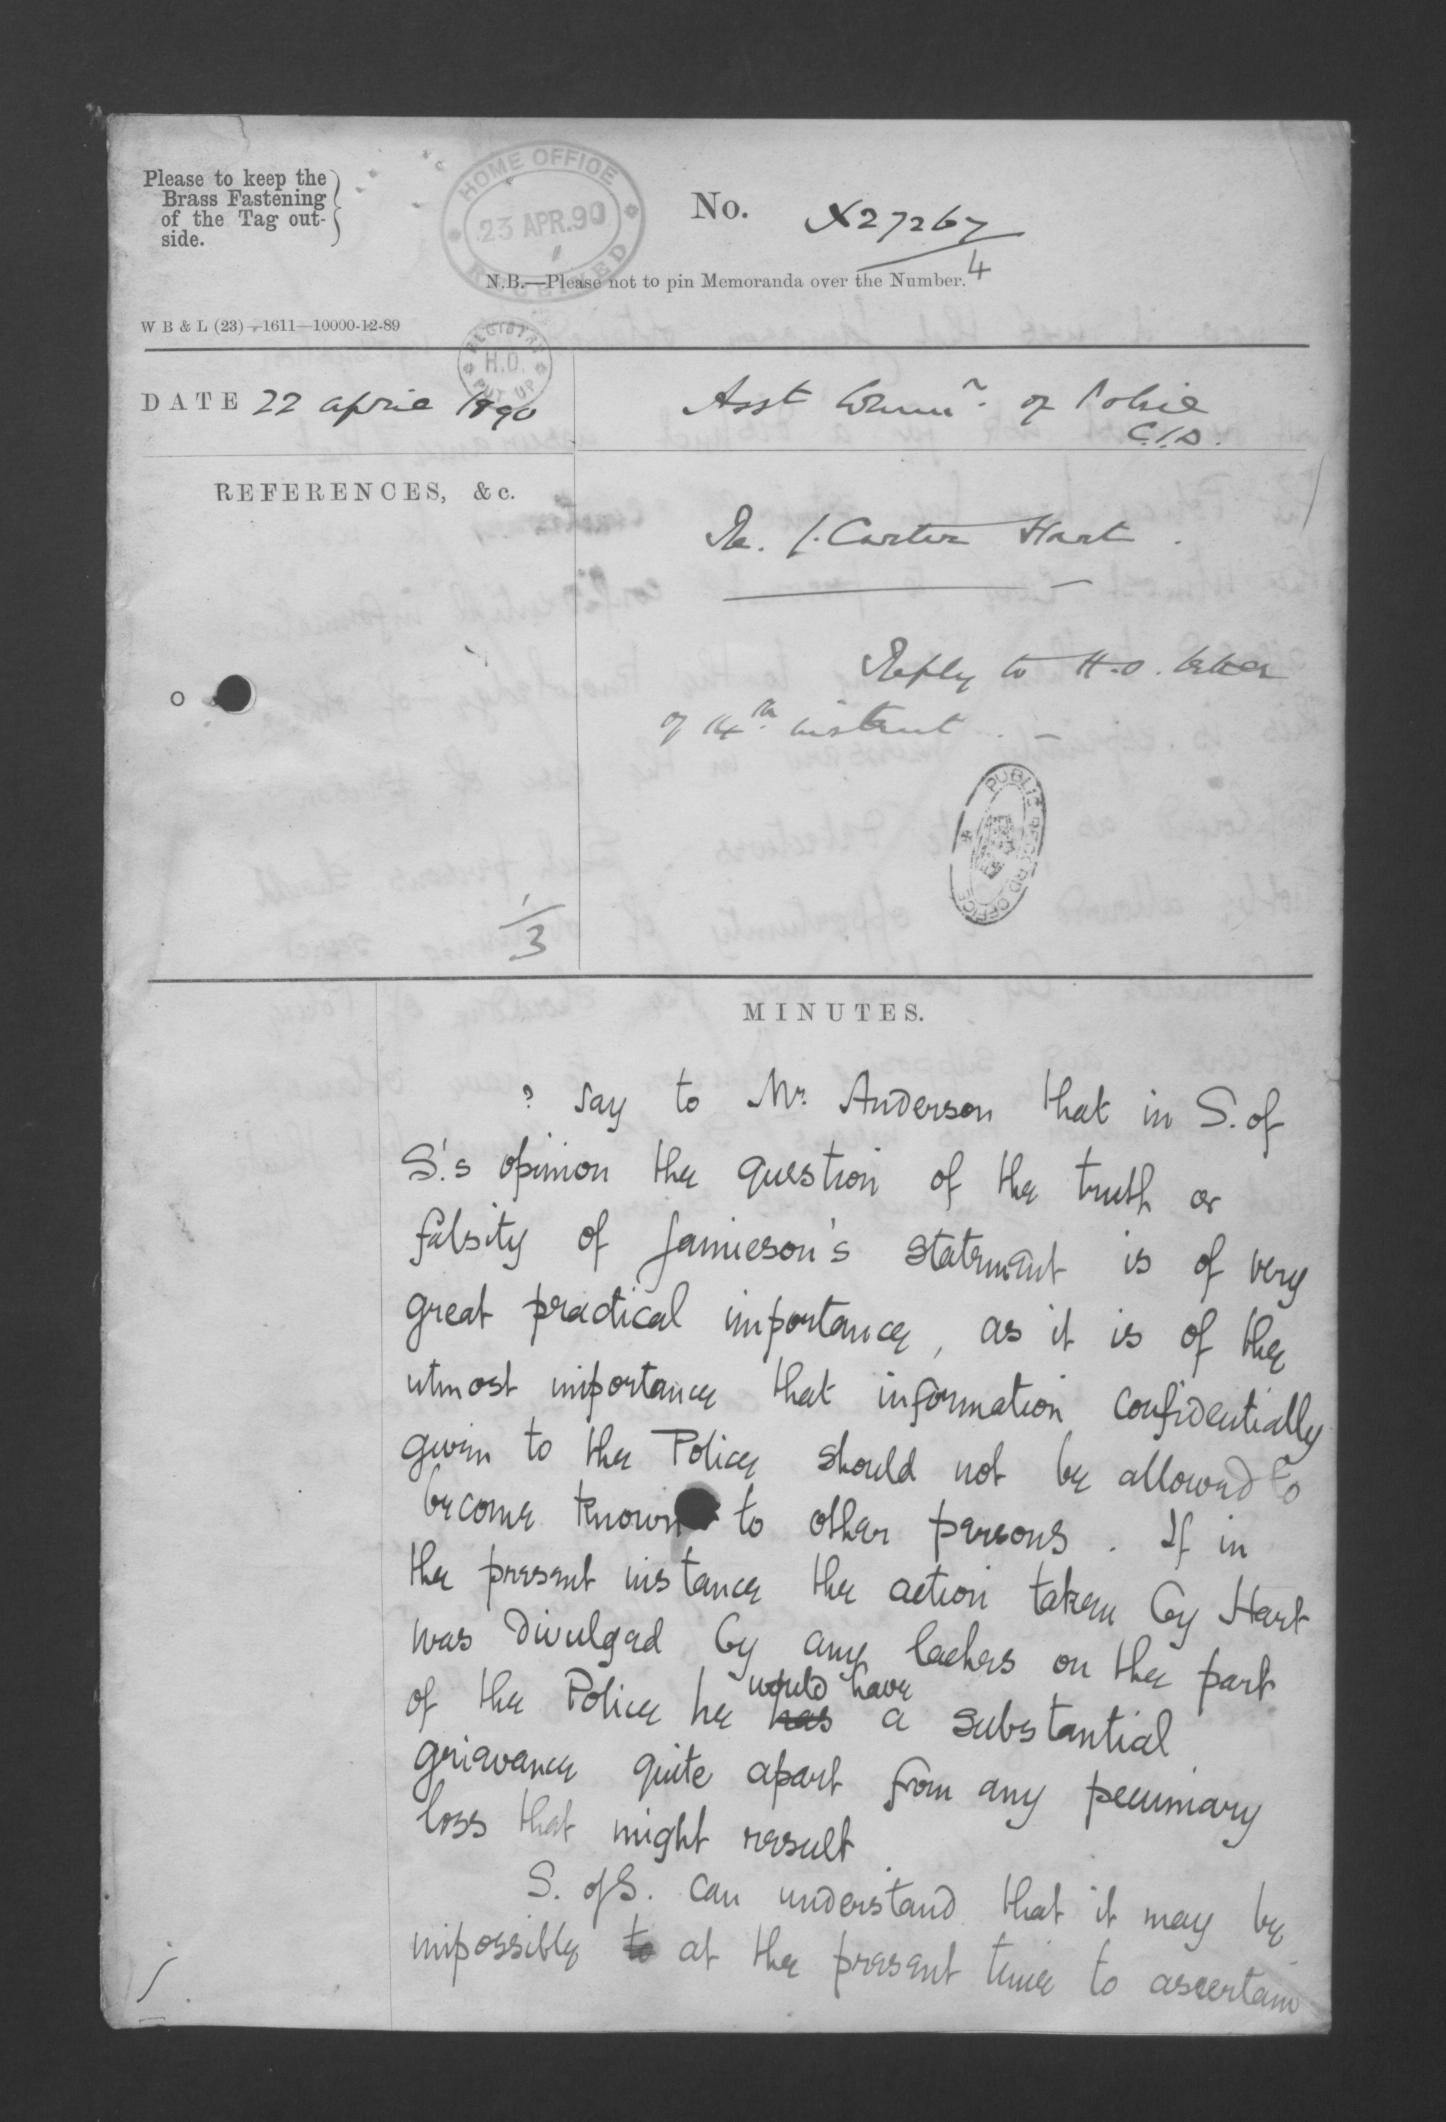 Please to keep the
Brass Fastening
of the Tag out-
side.
HOME OFFICE
23 APR.90
RECEIVED
No. X27267
4
N.B.—Please not to pin Memoranda over the Number.
W B & L (23)—1611—10000-12-89
REGISTRY
H.O.
PUT UP
DATE 22 April 1890
Asst Commr. of Police
C.I.D.
REFERENCES, &c.
Re. J. Carter Hart.
Reply to H.O. letter
of 14th instant.—
PUBLIC RECORD OFFICE
1/3
MINUTES.
? Say to Mr. Anderson that in S. of
S.'s opinion the question of the truth or
falsity of Jamieson's statement is of very
great practical importance, as it is of the
utmost importance that information confidentially
given to the Police should not be allowed to
become known to other persons. If in
the present instance the action taken by Hart
was divulged by any laches on the part
of the Police he has would have a substantial
grievance quite apart from any pecuniary
loss that might result.
S. of S. can understand that it may be
impossible to at the present time to ascertain